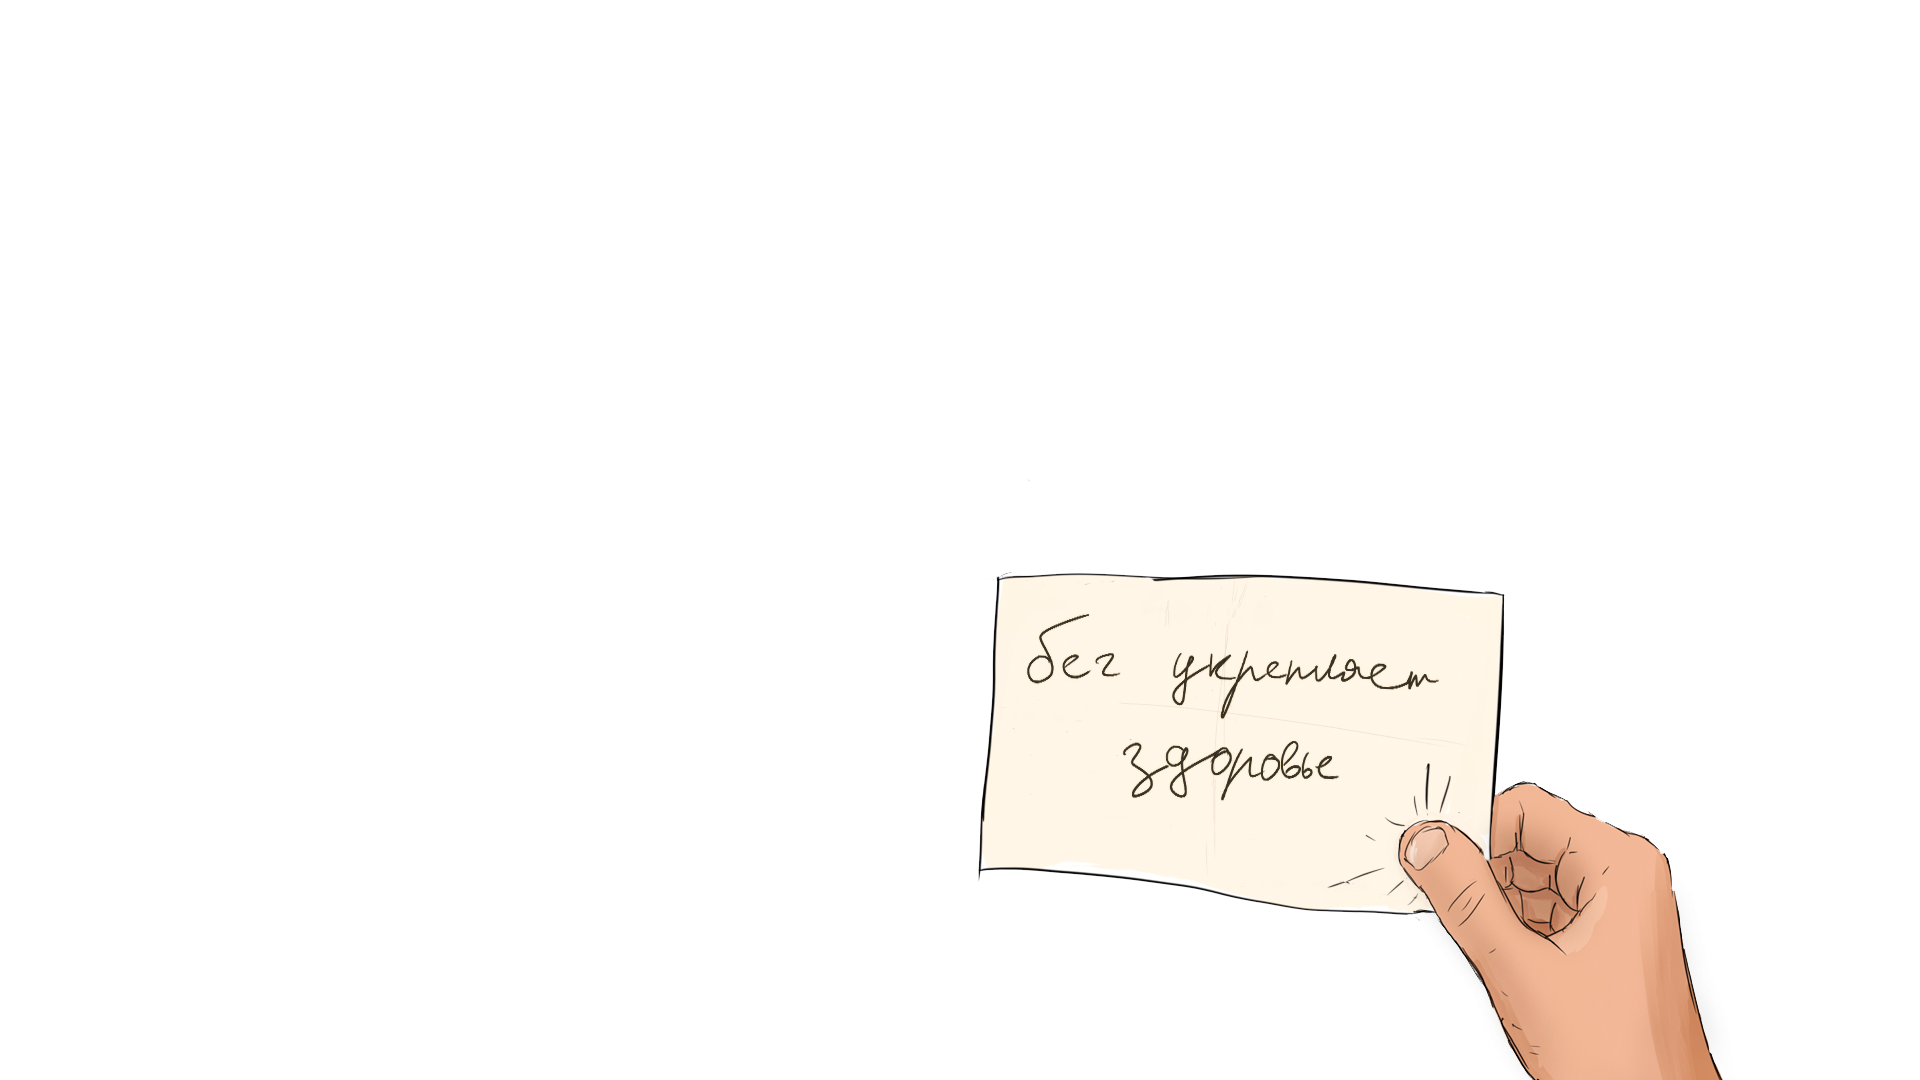 бег укрепляет
здоровье